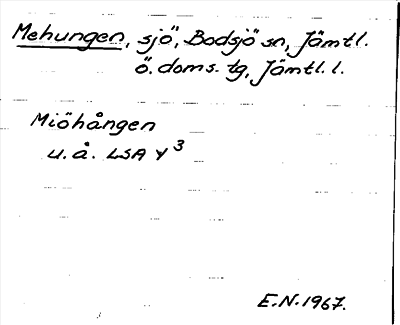 Mehungen, sjö, Bodsjö sn, Jämtl.
Ö. doms. tg, Jämtl. l.
Miöhången
u.å. LSA Y³
E.N. 1967.